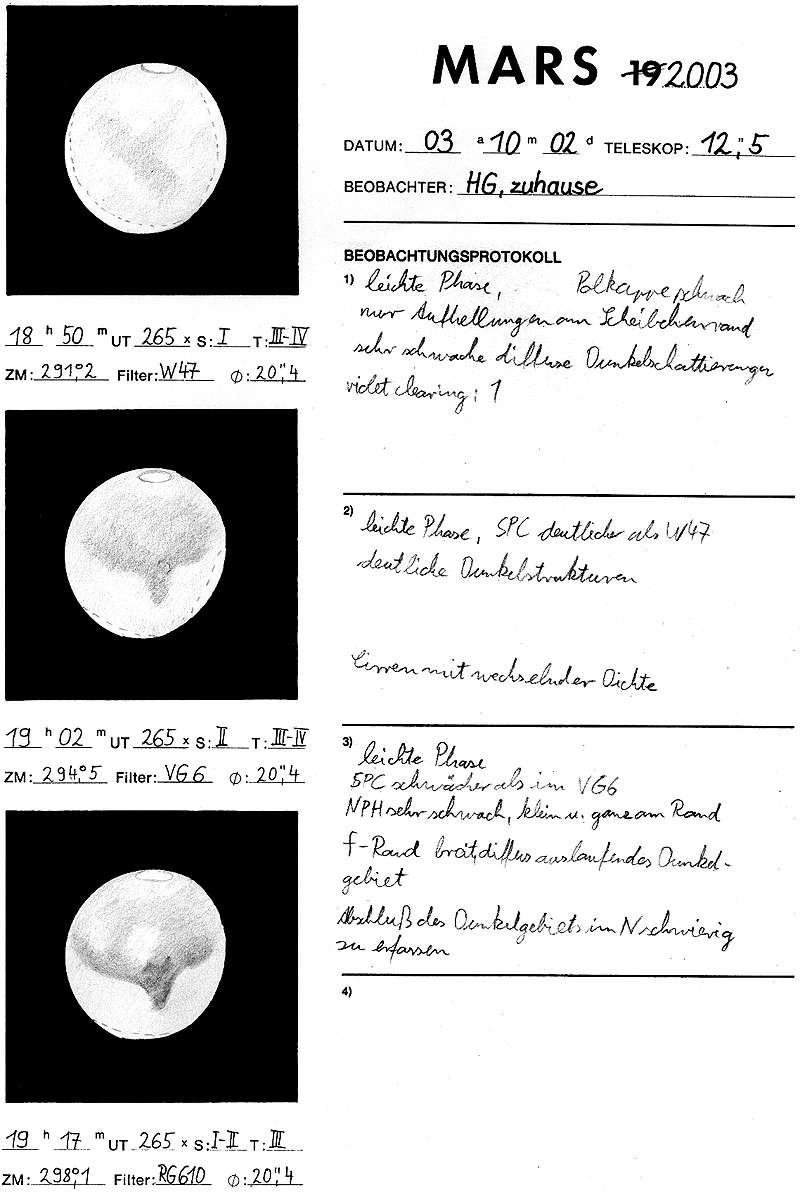 MARS 19 2003
DATUM: 03 a 10 m 02 d TELESKOP: 12",5
BEOBACHTER: HG, zuhause
BEOBACHTUNGSPROTOKOLL
18 h 50 m UT 265 x S: I T: III-IV
ZM: 291°2 Filter: W47 Ø: 20",4
1) leichte Phase, Polkappe schwach
nur Aufhellungen am Scheibchenrand
sehr schwache diffuse Dunkelschattierungen
violet clearing: 1
19 h 02 m UT 265 x S: II T: III-IV
ZM: 294°5 Filter: VG6 Ø: 20",4
2) leichte Phase, SPC deutlicher als W47
deutliche Dunkelstrukturen
Cirren mit wechselnder Dichte
19 h 17 m UT 265 x S: I-II T: III
ZM: 298°1 Filter: RG610 Ø: 20",4
3) leichte Phase
SPC schwächer als im VG6
NPH sehr schwach, klein u. ganz am Rand
f-Rand breit, diffus auslaufendes Dunkel-
gebiet
Abschluß des Dunkelgebiets im N schwierig
zu erfassen
4)